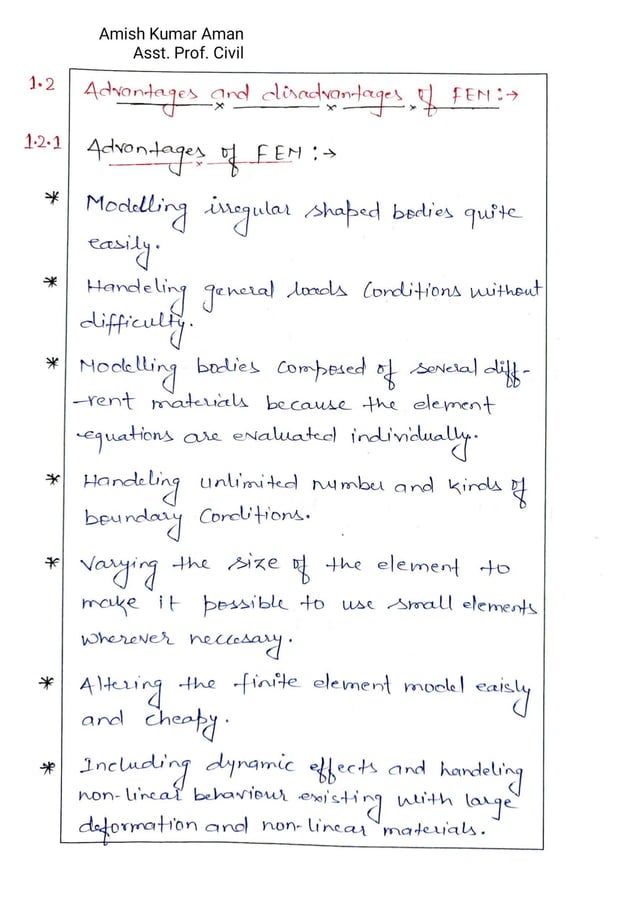 Amish Kumar Aman
Asst. Prof. Civil
1.2 Advantages and disadvantages of FEM :→
1.2.1 Advantages of FEM :→
* Modelling irregular shaped bodies quite
easily.
* Handeling general loads Conditions without
difficulty.
* Modelling bodies Composed of several diff-
-rent materials because the element
equations are evaluated individually.
* Handeling unlimited number and kinds of
boundary Conditions.
* Varying the size of the element to
make it possible to use small elements
wherever neccesary.
* Altering the finite element model eaisly
and cheapy.
* Including dynamic effects and handeling
non-linear behaviour existing with large
deformation and non-linear materials.